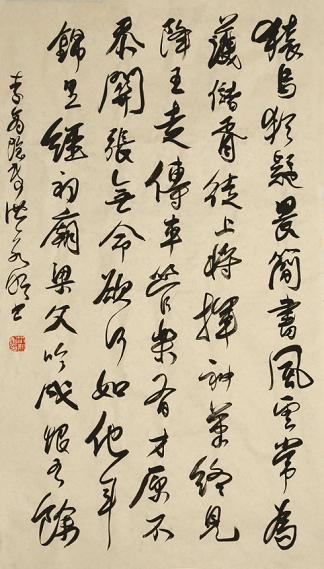 猿鳥猶疑畏簡書風雲常為
護儲胥徒上將揮神筆終見
降王走傳車管樂有才原不
忝關張無命欲何如他年
錦里經祠廟梁父吟成恨有餘
李商隱詩